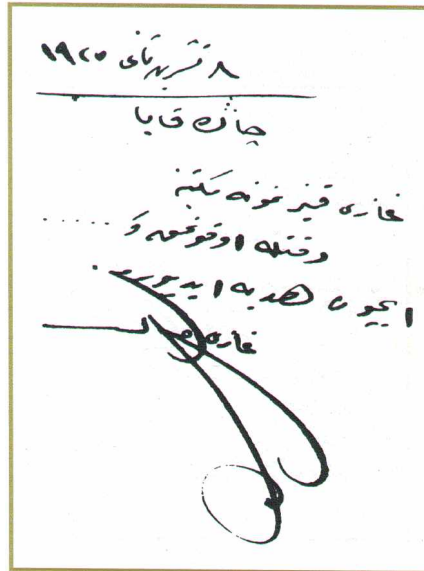 ٨ تشرين ثانی ١٩٢٥
چان قايا
غازی قيز نمونه مكتبنه
وقتله اوقونمق و .....
ايچون هديه ايديورم.
غازی